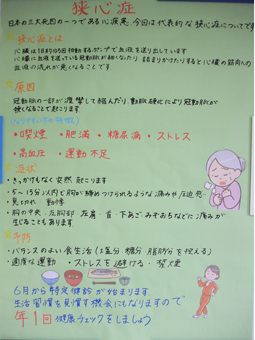 狭心症
日本の三大死因の一つである心疾患 今回は代表的な狭心症についてです
狭心症とは
心臓は1日約10万回拍動するポンプで血液を送り出しています
心臓に血液を送っている冠動脈が細くなったり 詰まりかけたりすると心臓の筋肉への
血液の流れが悪くなることです
原因
冠動脈の一部が痙攣して縮んだり 動脈硬化により冠動脈が
狭くなることで起こります
・喫煙 ・肥満 ・糖尿病 ・ストレス
・高血圧 ・運動不足
症状
・きっかけもなく突然起こります
・5〜15分以内で胸が締めつけられるような痛みや圧迫感
・息切れ 動悸
・胸の中央 左胸部 左肩 首 下あご みぞおちなどに痛みが
生じることもあります
予防
・バランスのよい食生活(塩分 糖分 脂肪分を控える)
・適度な運動 ・ストレスを避ける ・禁煙
6月から特定健診が始まります
生活習慣を見直す機会にもなりますので
年1回健康チェックをしましょう